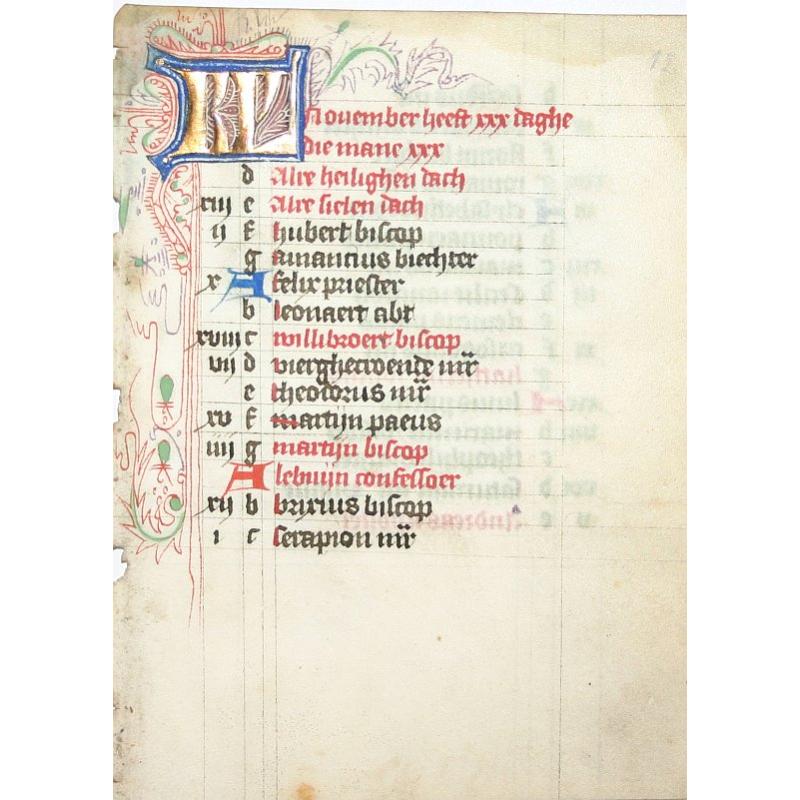 KL Nouember heeft xxx daghe
die mane xxx
d Alre heilighen dach
xiii e Alre sielen dach
ii f hubert biscop
g amancius biechter
x A felix priester
b leonaert abt
xviii c willibroert biscop
vii d vierghecroende mr
e theodorus mr
xv f martijn paeus
iiii g martijn biscop
A lebuijn confessoer
xii b brixius biscop
i c serapion mr